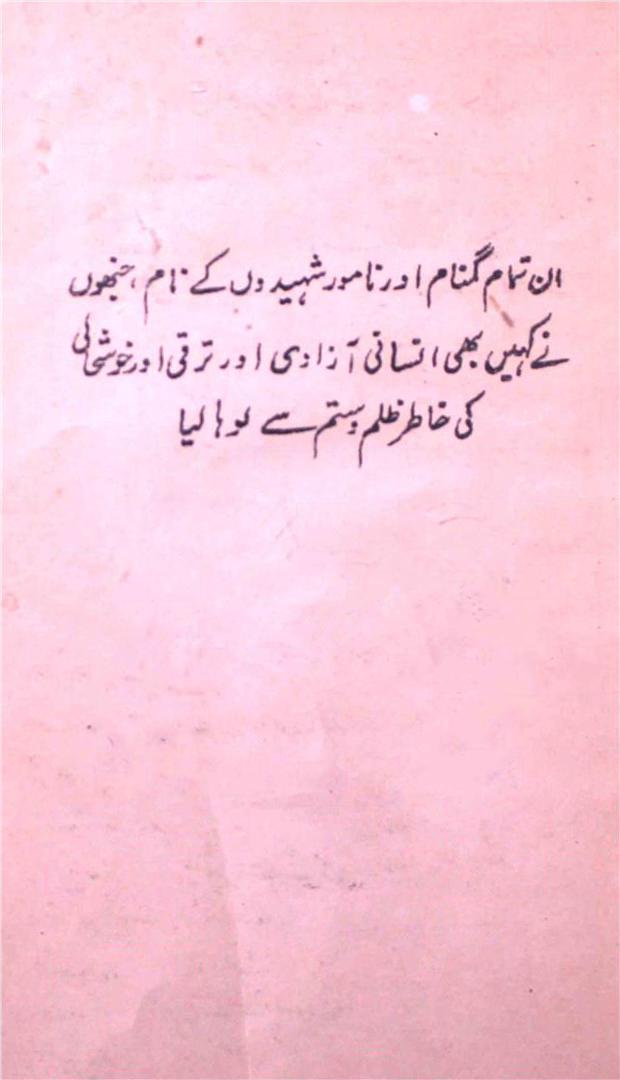 ان تمام گمنام اور نامور شہیدوں کے نام، جنھوں
نے کہیں بھی انسانی آزادی اور ترقی اور خوشحالی
کی خاطر ظلم و ستم سے لوہا لیا